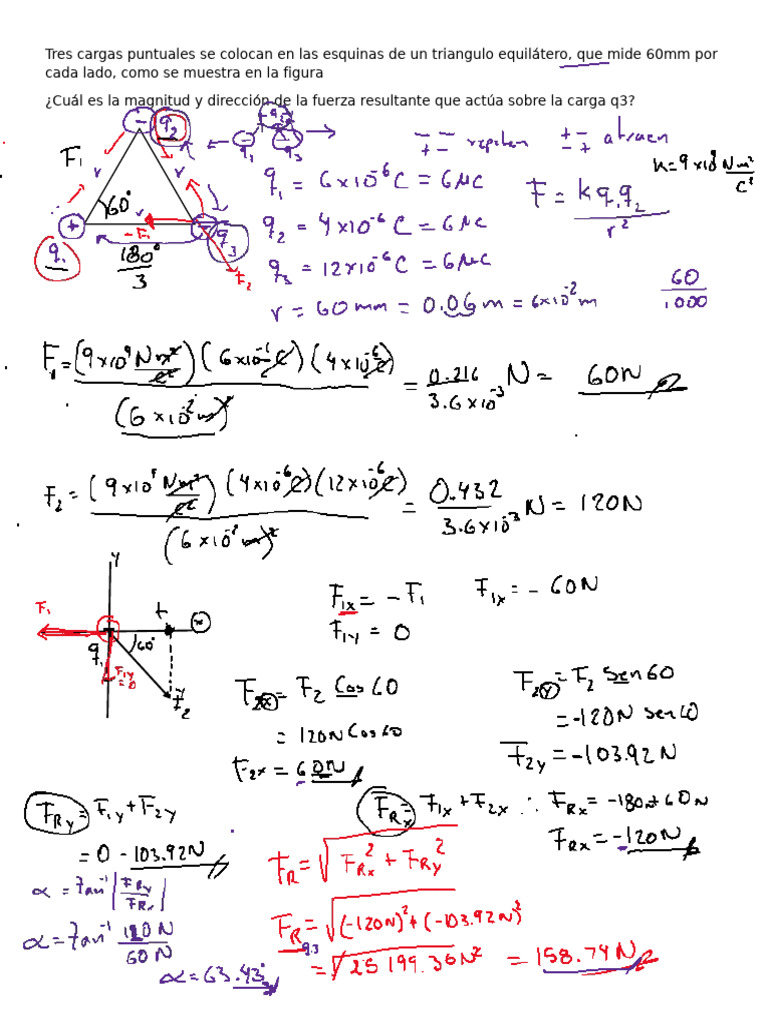 Tres cargas puntuales se colocan en las esquinas de un triangulo equilátero, que mide 60mm por
cada lado, como se muestra en la figura
¿Cuál es la magnitud y dirección de la fuerza resultante que actúa sobre la carga q3?
- q₂
F₁
r r
60°
r
+ - q₃
q₁ -F₁
F₂
180°/3
q₂
- -
q₁ q₃
- - repelen + - atraen
+ - - +
k=9x10⁹ Nm²/C²
q₁ = 6x10⁻⁶ C = 6μC
F = k q₁ q₂ / r²
q₂ = 4x10⁻⁶ C = 6μC
q₃ = 12x10⁻⁶ C = 6μC
r = 60mm = 0.06m = 6x10⁻² m
60/1000
F₁ = (9x10⁹ Nm²/C²)(6x10⁻¹ C)(4x10⁻⁶ C) / (6x10⁻² m)² = 0.216/3.6x10⁻³ N = 60N
F₂ = (9x10⁹ Nm²/C²)(4x10⁻⁶ C)(12x10⁻⁶ C) / (6x10⁻² m)² = 0.432/3.6x10⁻³ N = 120N
y
F₁ x
q₁ 60°
F₁y = 0
F₂
F₁x = -F₁ F₁x = -60N
F₁y = 0
F₂x = F₂ Cos60
= 120N Cos60
F₂x = 60N
F₂y = F₂ Sen60
= -120N Sen60
F₂y = -103.92N
FRy = F₁y + F₂y
= 0 - 103.92N
FRx = F₁x + F₂x ∴ FRx = -180N+60N
FRx = -120N
FR = √FRx² + FRy²
α = Tan⁻¹ |FRy/FRx|
FR = √(-120N)² + (-103.92N)²
q₃
α = Tan⁻¹ 120N/60N
= √25199.36N² = 158.74N
α = 63.43°